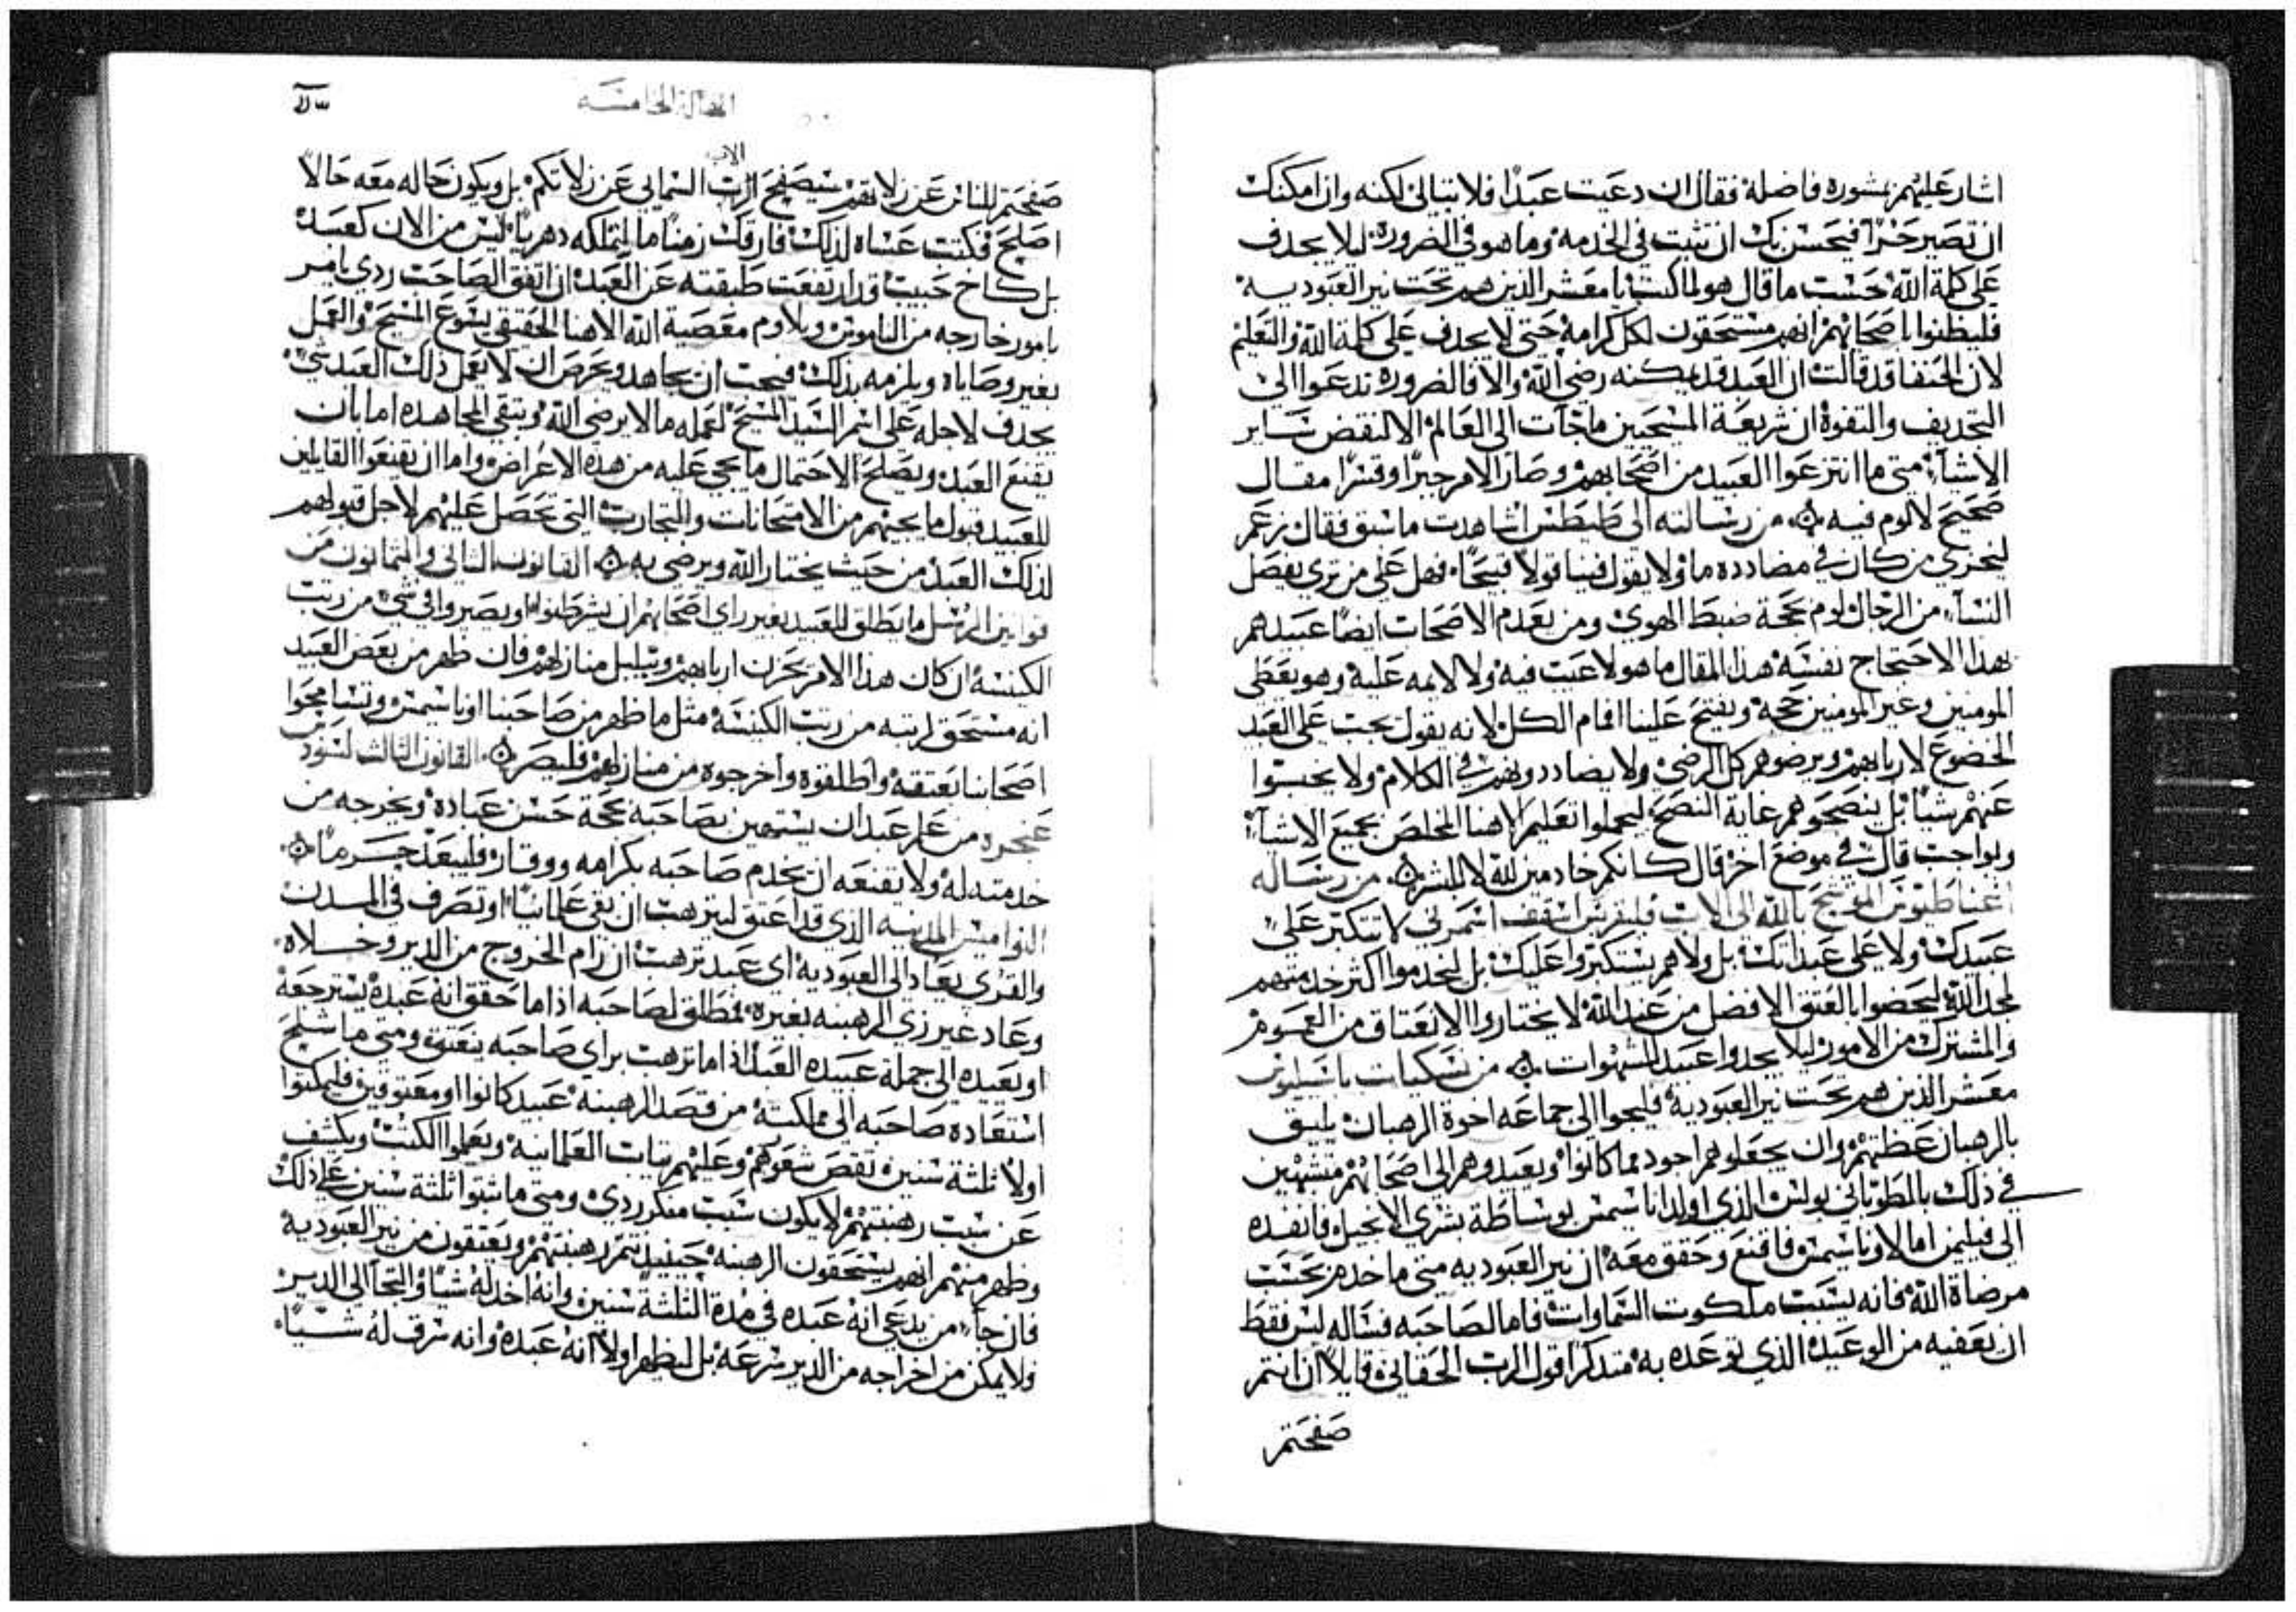 اشار عليهم بمشوره فاضلة فقال ان دعيت عبدًا فلا تبالي لكنه وان امكنك
ان تصير حرًا فيحسن بك ان تثبت في الخدمه وما هو في الضروره ليلا يجدف
على كلمة الله حسب ما قال هو لما كتب يا معشر الذين هم تحت نير العبوديه
فليظنوا باصحابهم انهم مستحقون لكل كرامة حتى لا يجدف على كلمة الله والتعليم
لان الحنفا قد قالت ان العبد قد يمكنه رضى الله والا فالضروره تدعوا الى
التجديف والتفوه ان شريعة المسيحيين ما جآت الى العالم الا لنقض ساير
الاشيآ متى ما انتزعوا العبيد من اصحابهم وصار الامر جبرًا وقسرًا مقال
صحيح لا لوم فيه من رسالته الى طيطس اشاهدت ما سبق فقال زعم
ليخزي من كان في مضادده ما ولا يقول فينا قولاً قبيحًا فهل على من تري يفصل
النسآ من الرجال لوم بحجة ضبط الهوى ومن يعدم الاصحاب ايضًا عبيدهم
بهذا الاحتجاج نفسه هذا المقال ما هو لا عيب فيه ولا لايمه عليه وهو يعطى
المومنين وغير المومنين حجة ويفتح علينا افام الكل لانه يقول يجب على العبد
الخضوع لاربابهم ويرضوهم كل الرضى ولا يضاددونهم في الكلام ولا يحبسوا
عنهم شيًا بل ينصحوهم غاية النصح ليجملوا تعليم الاهنا المخلص بجميع الاشيآ
وبواجب قال في موضع اخر قال كانكم خادمين لله لا للبشر من رساله
اغناطيوس المتوشح بالله الى الاب فليقربس اسقف اسمرني لا تتكبر على
عبيدك ولا على عبداتك بل ولا هم يستكبروا عليك بل ليخدموا اكثر خدمتهم
لمجد الله ليحضوا بالعتق الافضل من عند الله لا يختاروا الانعتاق من العموم
والمشترك من الامور ليلا يجدوا عبيد للشهوات من نسكيات باسيليوس
معشر الذين هم تحت نير العبودية فليجوا الى جماعه اخوة الرهبان يليق
بالرهبان عظتهم وان يجعلوهم اجود مما كانوا ويعيدوهم الى اصحابهم متشبهين
في ذلك بالطوباني بولس الذي اولد اناسيمس بوساطة بشرى الانجيل فانفده
الى فيليمن اما لاوناسيمس فاقنع وحقق معه ان نير العبوديه متى ما خدم بحسب
مرضاة الله فانه يسبب ملكوت السماوات فاما لصاحبه فساله ليس فقط
ان يعفيه من الوعيد الذي توعده به متدكرًا قول الرب الحقاني قايلاً ان انتم
صفحتم
المقالة الخامسه
صفحتم للناس عن زلاتهم سيصفح الرب السمايي عن زلاتكم بل ويكون حاله معه حالاً
الاب
اصلح فكتب عساه لذلك فارقك زمنًا ما لتملكه دهريًا ليس من الان كعبد
بل كاخ حبيب قد ارتفعت طبقته عن العبد ان اتفق الصاحب ردي يامر
بامور خارجه من الناموس ويلاوم معصية الله الاهنا الحقيقي يسوع المسيح والعمل
بغير وصاياه ويلزمه بذلك فيجب ان يجاهد ويحرص ان لا يعمل ذلك العبد شيً
يجدف لاجله على اسم السيد المسيح لعمله ما لا يرضى الله ويتقي المجاهده اما بان
يقنع العبد ويصلح الاحتمال ما يجي عليه من هذه الاعراض واما ان يقنعوا القابلين
للعبيد قبول ما يجيهم من الامتحانات والتجارب التي تحصل عليهم لاجل قبولهم
لذلك العبد من حيث يختار الله ويرضى به القانون الثاني والثمانون من
قوانين الرسل ما يطلق للعبيد بغير راي اصحابهم ان يشرطنوا ويصيروا في شي من رتب
الكنيسة ان كان هذا الامر يحزن اربابهم ويبلبل منازلهم فان ظهر من بعض العبيد
انه مستحق لرتبه من رتب الكنيسه مثل ما ظهر من صاحبنا اوناسيمس وتسامحوا
اصحابنا بعتقه واطلقوه واخرجوه من منازلهم فليصر القانون الثالث لسنودس
غنجره من علم عبدان يستهين بصاحبه بحجة حسن عباده ويخرجه من
خدمته له ولا يقنعه ان يخدم صاحبه بكرامه ووقار فليبعد جرمًا
النواميس المدنيه الذي قد اعتق ليترهب ان بقي علمانيًا او تصرف في المدن
والقرى يعاد الى العبوديه اى عبد ترهب ان رام الخروج من الدير وخلاه
وعاد غير زي الرهبنه بغيره فمطلق لصاحبه اذا ما حقق انه عبده يسترجعه
او يعيده الى جملة عبيده العبد اذا ما ترهب براى صاحبه ينعتق ومتى ما شلح
استعاده صاحبه الى مملكته من قصد الرهبنة عبيد كانوا او معتوقين فليمكثوا
اولاً ثلثة سنين بقص شعورهم وعليهم تياب العلمانيه ويعلموا الكتب ويكشف
عن سبب رهبنتهم لا يكون سبب منكر ردي ومتى ما ثبتوا ثلثة سنين على ذلك
وظهر منهم انهم يستحقون الرهبنه حينيذ تتم رهبنتهم ويعتقون من نير العبودية
فان جآ من يدعي انه عبده في مدة الثلثة سنين وانه اخد له شيًا والتجا الى الدير
ولا يمكن من اخراجه من الدير سرعه بل ليظهر اولاً انه عبده وانه سرق له شيًا